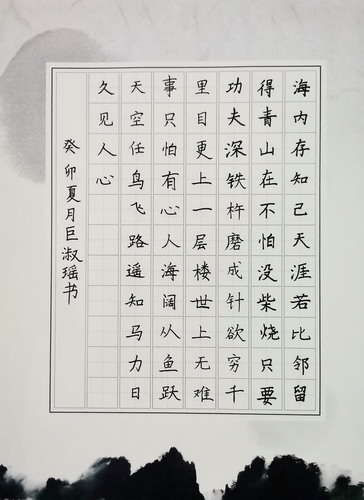 海内存知己天涯若比邻留
得青山在不怕没柴烧只要
功夫深铁杵磨成针欲穷千
里目更上一层楼世上无难
事只怕有心人海阔从鱼跃
天空任鸟飞路遥知马力日
久见人心
癸卯夏月巨淑瑶书